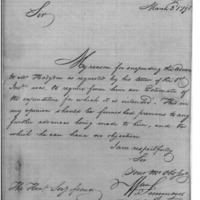 March 3d 18
Sir
My reason for suspending the
to Mr Hodgson as requested by his letter of the 1st
Inst. was, to require from him an Estimate of
the expenditure for which it is intended. This in
my opinion should be furnished previous to any
further advances being made to him, and to
which he can have no objection
I am respectfully
Sir
Your Mo Obt
The Honl